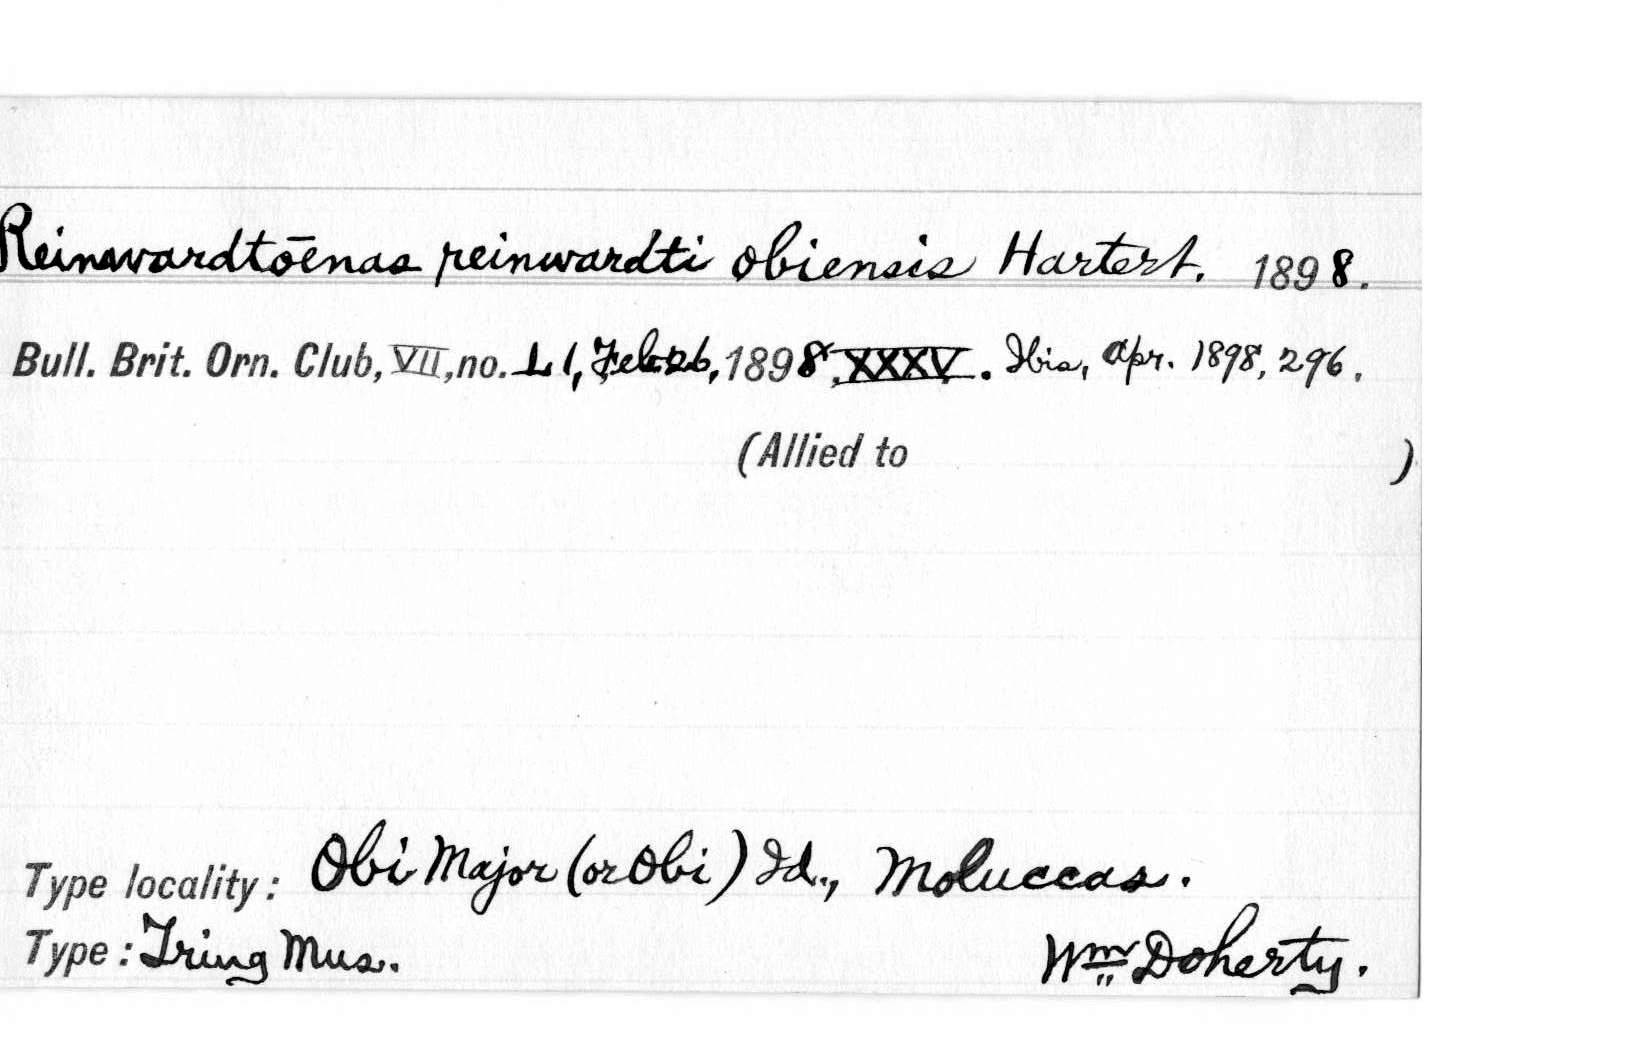 Reinwardtōenas reinwardti obiensis Hartert. 1898.
Bull. Brit. Orn. Club, VII, no. L I, Feb. 26, 1898, XXXV. Ibis, Apr. 1898, 296.
(Allied to )
Type locality: Obi Major (or Obi) Id., Moluccas.
Type: Tring Mus. Wm Doherty.